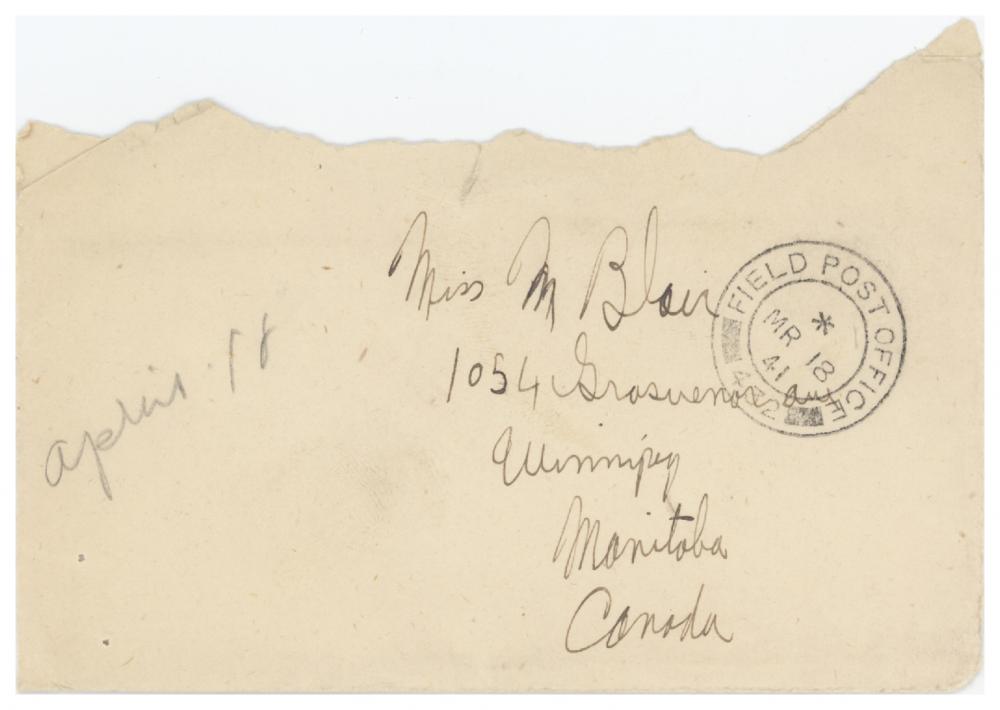 Miss M Blair
1054 Grosvenor Ave
Winnipeg
Manitoba
Canada
april 18
FIELD POST OFFICE
*
MR 18
41